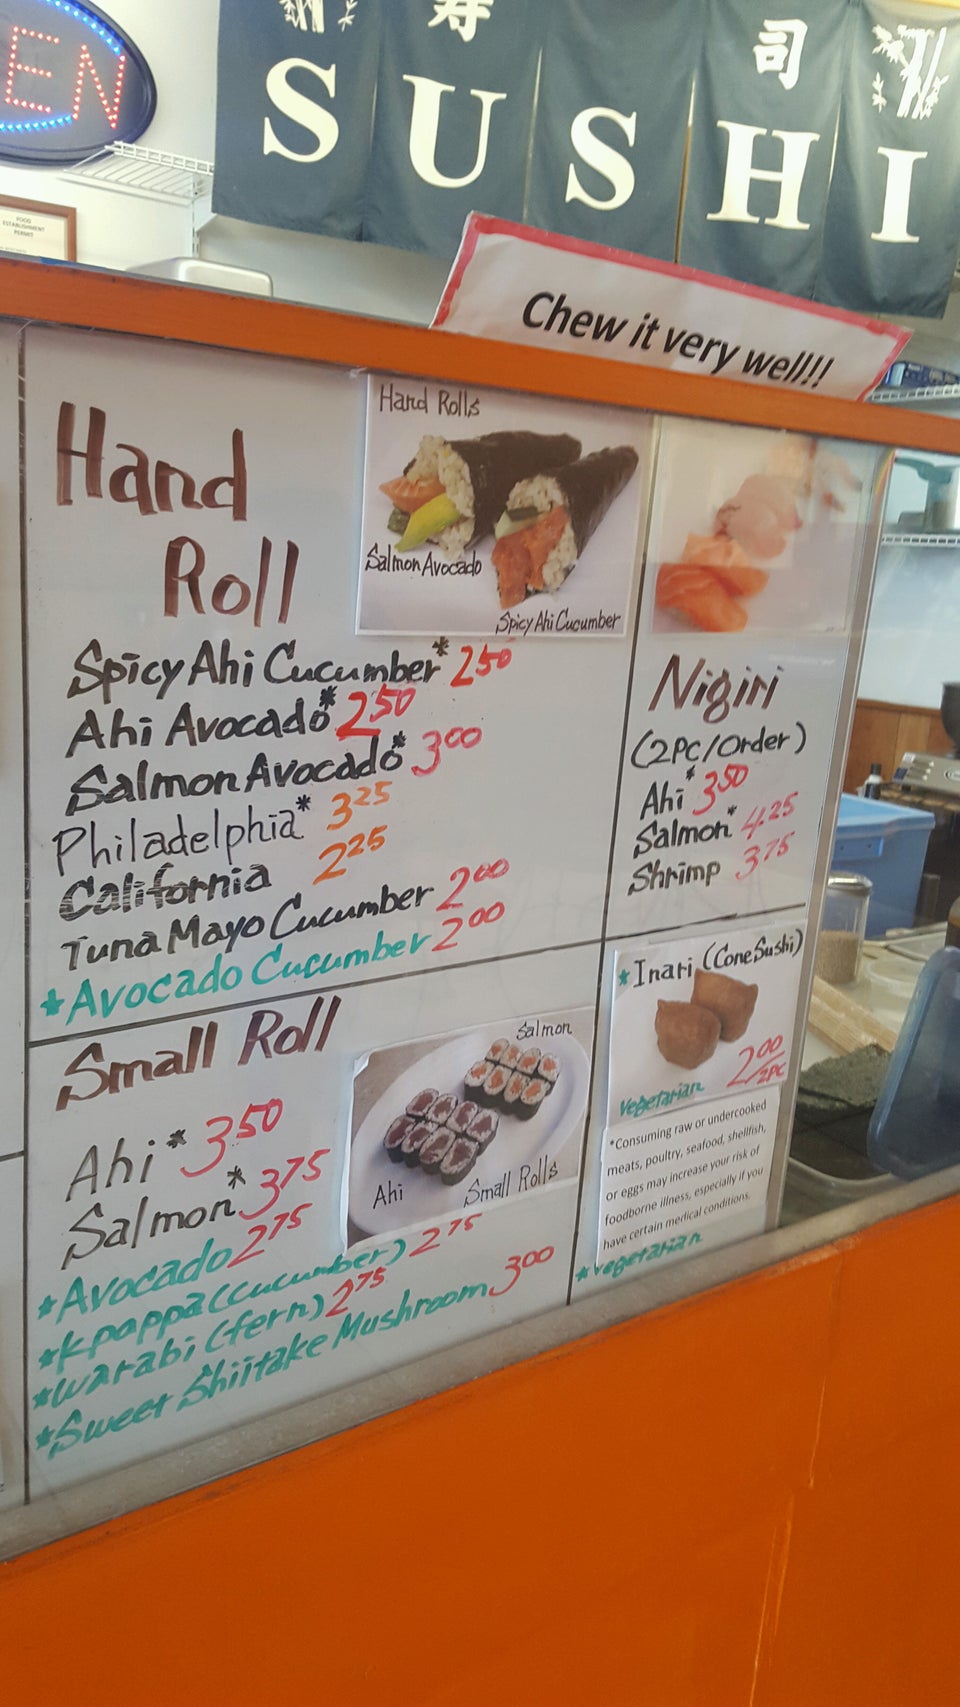 EN
寿 司
SUSHI
FOOD
ESTABLISHMENT
PERMIT
Chew it very well!!
Hand
Roll
Hand Rolls
Salmon Avocado
Spicy Ahi Cucumber
Spicy Ahi Cucumber* 2.50
Ahi Avocado* 2.50
Salmon Avocado* 3.00
Philadelphia* 3.25
California 2.25
Tuna Mayo Cucumber 2.00
*Avocado Cucumber 2.00
Nigiri
(2PC/Order)
Ahi* 3.50
Salmon* 4.25
Shrimp 3.75
Small Roll
Salmon
Ahi
Small Rolls
Ahi* 3.50
Salmon* 3.75
*Avocado 2.75
*Kpappa (cucumber) 2.75
*Warabi (fern) 2.75
*Sweet Shiitake Mushroom 3.00
*Inari (Cone Sushi)
Vegetarian 2.00/2PC
*Consuming raw or undercooked
meats, poultry, seafood, shellfish,
or eggs may increase your risk of
foodborne illness, especially if you
have certain medical conditions.
*vegetarian